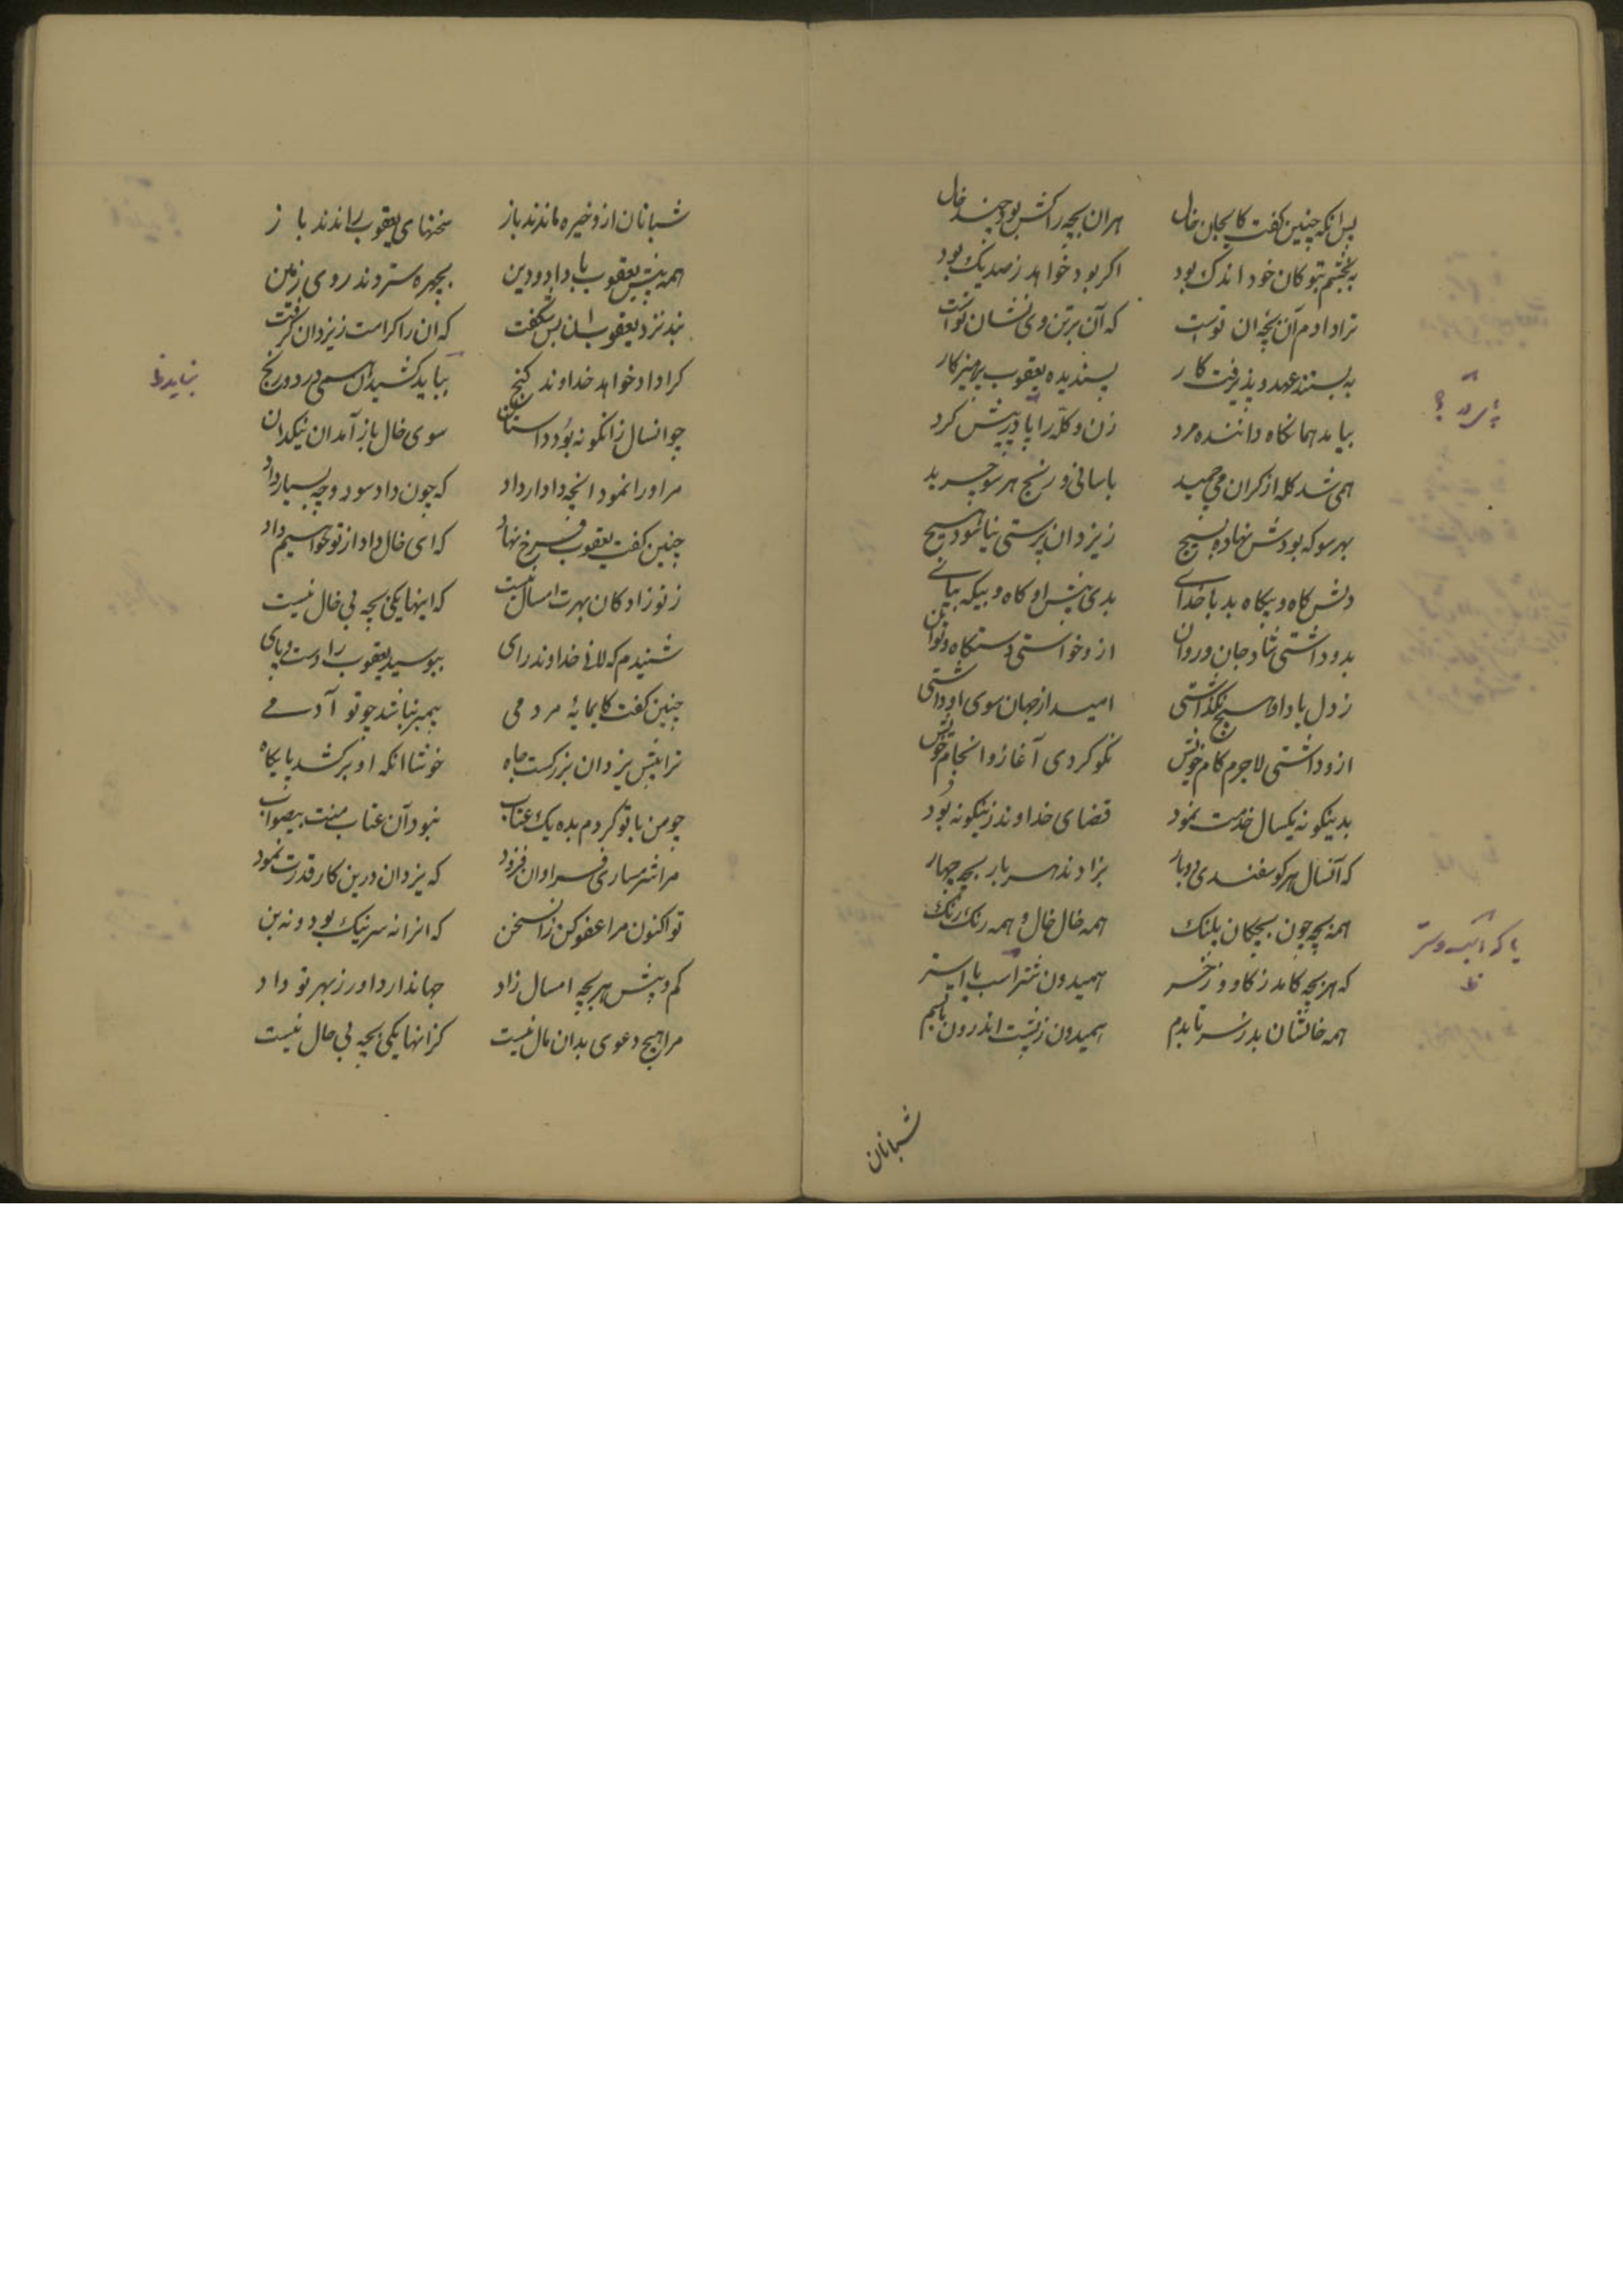 پس انکه چنین کفت کایجان خال هران بچه راکش بود چند خال
ببخشم بتو کان خود اندک بود اکر بود خواهد ز صد یک بود
ترا دادم آن بچه ان توست که آن برتن وی نشان توست
به بستند عهد و پذیرفت کار پسندیده یعقوب پرهیزکار
بیامد همانکاه داننده مرد زن و کله را پاد در پیش کرد
همی شد کله از کران می چمید باسانی و رنج هر سو چرید
بهر سو که بودش نهاده بسیج ز یزدان پرستی نیاسود هیچ
دلش کاه و بیکاه بد با خدای بدی پیش او کاه و بیکه بپای
بدو داشتی شاد جان و روان ازو خواستی دستکاه و توان
ز دل یاد او هیچ نکذاشتی امید از جهان سوی او داشتی
ازو داشتی لاجرم کام خویش نکو کردی آغاز و انجام خویش
بدینکونه یکسال خدمت نمود قضای خداوند زینکونه بود
که آنسال هر کوسفندی دوبار بزادند هر بار بچه چهار
همه بچه چون بچکان پلنک همه خال خال و همه رنک رنک
که هر بچه کامد ز کاو و ز خر همیدون شتر اسب با استر
همه خالشان بد ز سر تا بدم همیدون ز پشت اندرون تا بسم
شبانان
شبانان ازو خیره ماندند باز سخنهای یعقوب راندند باز
همه پیش یعقوب با داد و دین بچهره ستردند روی زمین
بد نزد یعقوب ان بس شکفت که ان را کرامت ز یزدان کرفت
کرا داد خواهد خداوند کنج بباید کشیدن همی درد و رنج
نباید
چو انسال زانکونه بود داستان سوی خال باز آمد ان نیکدان
مر او را نمود انچه دادار داد که چون داد سود و چه بسیار داد
چنین کفت یعقوب فرخ نهاد که ای خال داد از تو خواهیم داد
ز نوزادکان بهرت امسال نیست که اینها یکی بچه بی خال نیست
شنیدم که لاف خداوند رای ببوسید یعقوب را دست و پای
چنین کفت کایمایهٔ مردمی پیمبر نباشد چو تو آدمی
ترا پیش یزدان بزرکست جاه خوشا انکه او برکشد پایکاه
چو من با تو کردم بده یک عتاب نبود آن عتاب منت بیصواب
مرا شرمساری فراوان فزود که یزدان درین کار قدرت نمود
تو اکنون مرا عفو کن زان سخن که انرا نه سر نیک بود و نه بن
کم و بیش هر بچه امسال زاد جهاندار داور ز بهر تو داد
مرا هیچ دعوی بدان مال نیست کز انها یکی بچه بی خال نیست